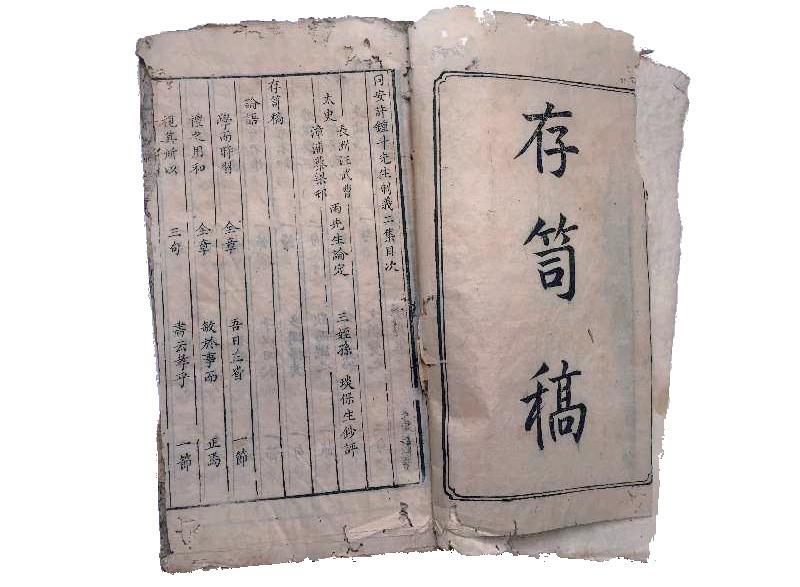 存笥稿
同安許鍾斗先生制義二集目次
長洲汪武曹
太史 兩先生論定 三姪孫 琰保生鈔評
漳浦蔡梁邨
存笥稿
論語
學而時習 全章 吾日三省 一節
禮之用和 全章 敏於事而 正焉
視其所以 三句 書云孝乎 一節